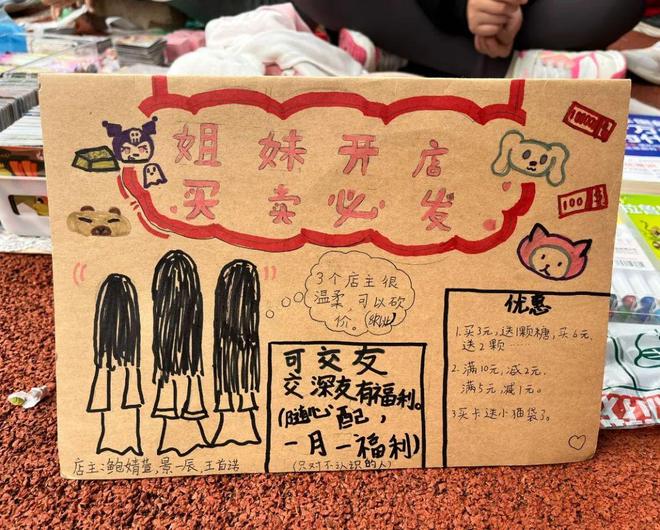 姐妹开店
买卖必发
10000
100
3个店主很
温柔,可以砍
价。
优惠
1.买3元,送1颗糖,买6元
送2颗……
2.满10元,减2元,
满5元,减1元。
3买卡送小猫袋了。
可交友
交深友有福利。
(随心配,
一月一福利)
(只对不认识的人)
店主:鲍婧萱,景一辰,王首诺